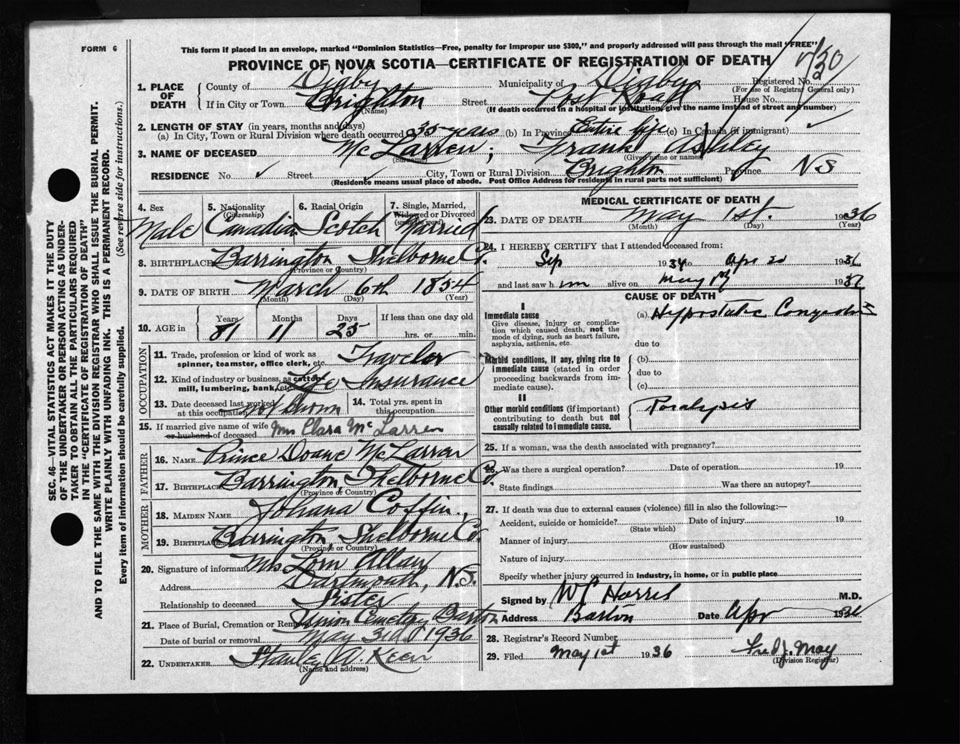 FORM 6
This form if placed in an envelope, marked "Dominion Statistics—Free, penalty for improper use $300," and properly addressed will pass through the mail "FREE"
PROVINCE OF NOVA SCOTIA—CERTIFICATE OF REGISTRATION OF DEATH
1. PLACE OF DEATH
County of Digby Municipality of Digby Registered No.
(For use of Registrar General only)
If in City or Town Brighton Street Post Road House No.
(Name) (If death occurred in a hospital or institution, give the name instead of street and number)
2. LENGTH OF STAY (in years, months and days)
(a) In City, Town or Rural Division where death occurred 35 years (b) In Province Entire life (c) In Canada (if immigrant)
3. NAME OF DECEASED McLarren; Frank Ashley
(Surname) (Given name or names)
RESIDENCE No. Street City, Town or Rural Division Brighton Province N S
(Residence means usual place of abode. Post Office Address for residents in rural parts not sufficient)
SEC. 46—VITAL STATISTICS ACT MAKES IT THE DUTY
OF THE UNDERTAKER OR PERSON ACTING AS UNDER-
TAKER TO OBTAIN ALL THE PARTICULARS REQUIRED
IN THE "CERTIFICATE OF REGISTRATION OF DEATH"
AND TO FILE THE SAME WITH THE DIVISION REGISTRAR WHO SHALL ISSUE THE BURIAL PERMIT.
WRITE PLAINLY WITH UNFADING INK. THIS IS A PERMANENT RECORD.
(See reverse side for instructions.)
Every item of information should be carefully supplied.
4. Sex
Male
5. Nationality
(Citizenship)
Canadian
6. Racial Origin
Scotch
7. Single, Married, Widowed or Divorced
Married
8. BIRTHPLACE Barrington Shelborne Co.
(Province or Country)
9. DATE OF BIRTH March 6th 1854
(Month) (Day) (Year)
10. AGE in Years Months Days If less than one day old
81 11 25 hrs. or min.
OCCUPATION
11. Trade, profession or kind of work as Travelor
spinner, teamster, office clerk, etc.
12. Kind of industry or business, as cotton Life Insurance
mill, lumbering, bank, etc.
13. Date deceased last worked at this occupation
14. Total yrs. spent in this occupation
15. If married give name of wife Mrs Clara McLarren
or husband of deceased
FATHER
16. Name Prince Doane McLarren
17. Birthplace Barrington, Shelborne Co.
(Province or Country)
MOTHER
18. Maiden Name Johana Coffin,
19. Birthplace Barrington, Shelborne Co.
(Province or Country)
20. Signature of informant Mrs Lorn Allan
Address Dartmouth, N.S.
Relationship to deceased Sister
21. Place of Burial, Cremation or Removal Union Cemetery Barton
Date of burial or removal May 3rd 1936
22. UNDERTAKER Stanley A. Keen
(Name and address)
MEDICAL CERTIFICATE OF DEATH
23. DATE OF DEATH May 1st. 1936
(Month) (Day) (Year)
24. I HEREBY CERTIFY that I attended deceased from:
Sep 1934 to
and last saw h im alive on May 1st
CAUSE OF DEATH
I
Immediate cause
Give disease, injury or complica-
tion which caused death, not the
mode of dying, such as heart failure,
asphyxia, asthenia, etc.
(a) Hypostatic Congestion
due to
Morbid conditions, if any, giving rise to
immediate cause (stated in order
proceeding backwards from im-
mediate cause).
(b)
due to
(c)
II
Other morbid conditions (if important)
contributing to death but not
causally related to immediate cause.
Paralysis
25. If a woman, was the death associated with pregnancy?
26. Was there a surgical operation? Date of operation 19
State findings Was there an autopsy?
27. If death was due to external causes (violence) fill in also the following:—
Accident, suicide or homicide? Date of injury 19
(State which)
Manner of injury
(How sustained)
Nature of injury
Specify whether injury occurred in industry, in home, or in public place
Signed by W C Harris M.D.
Address Barton Date Apr
28. Registrar's Record Number
29. Filed May 1st 1936 Fred J. May
(Division Registrar)